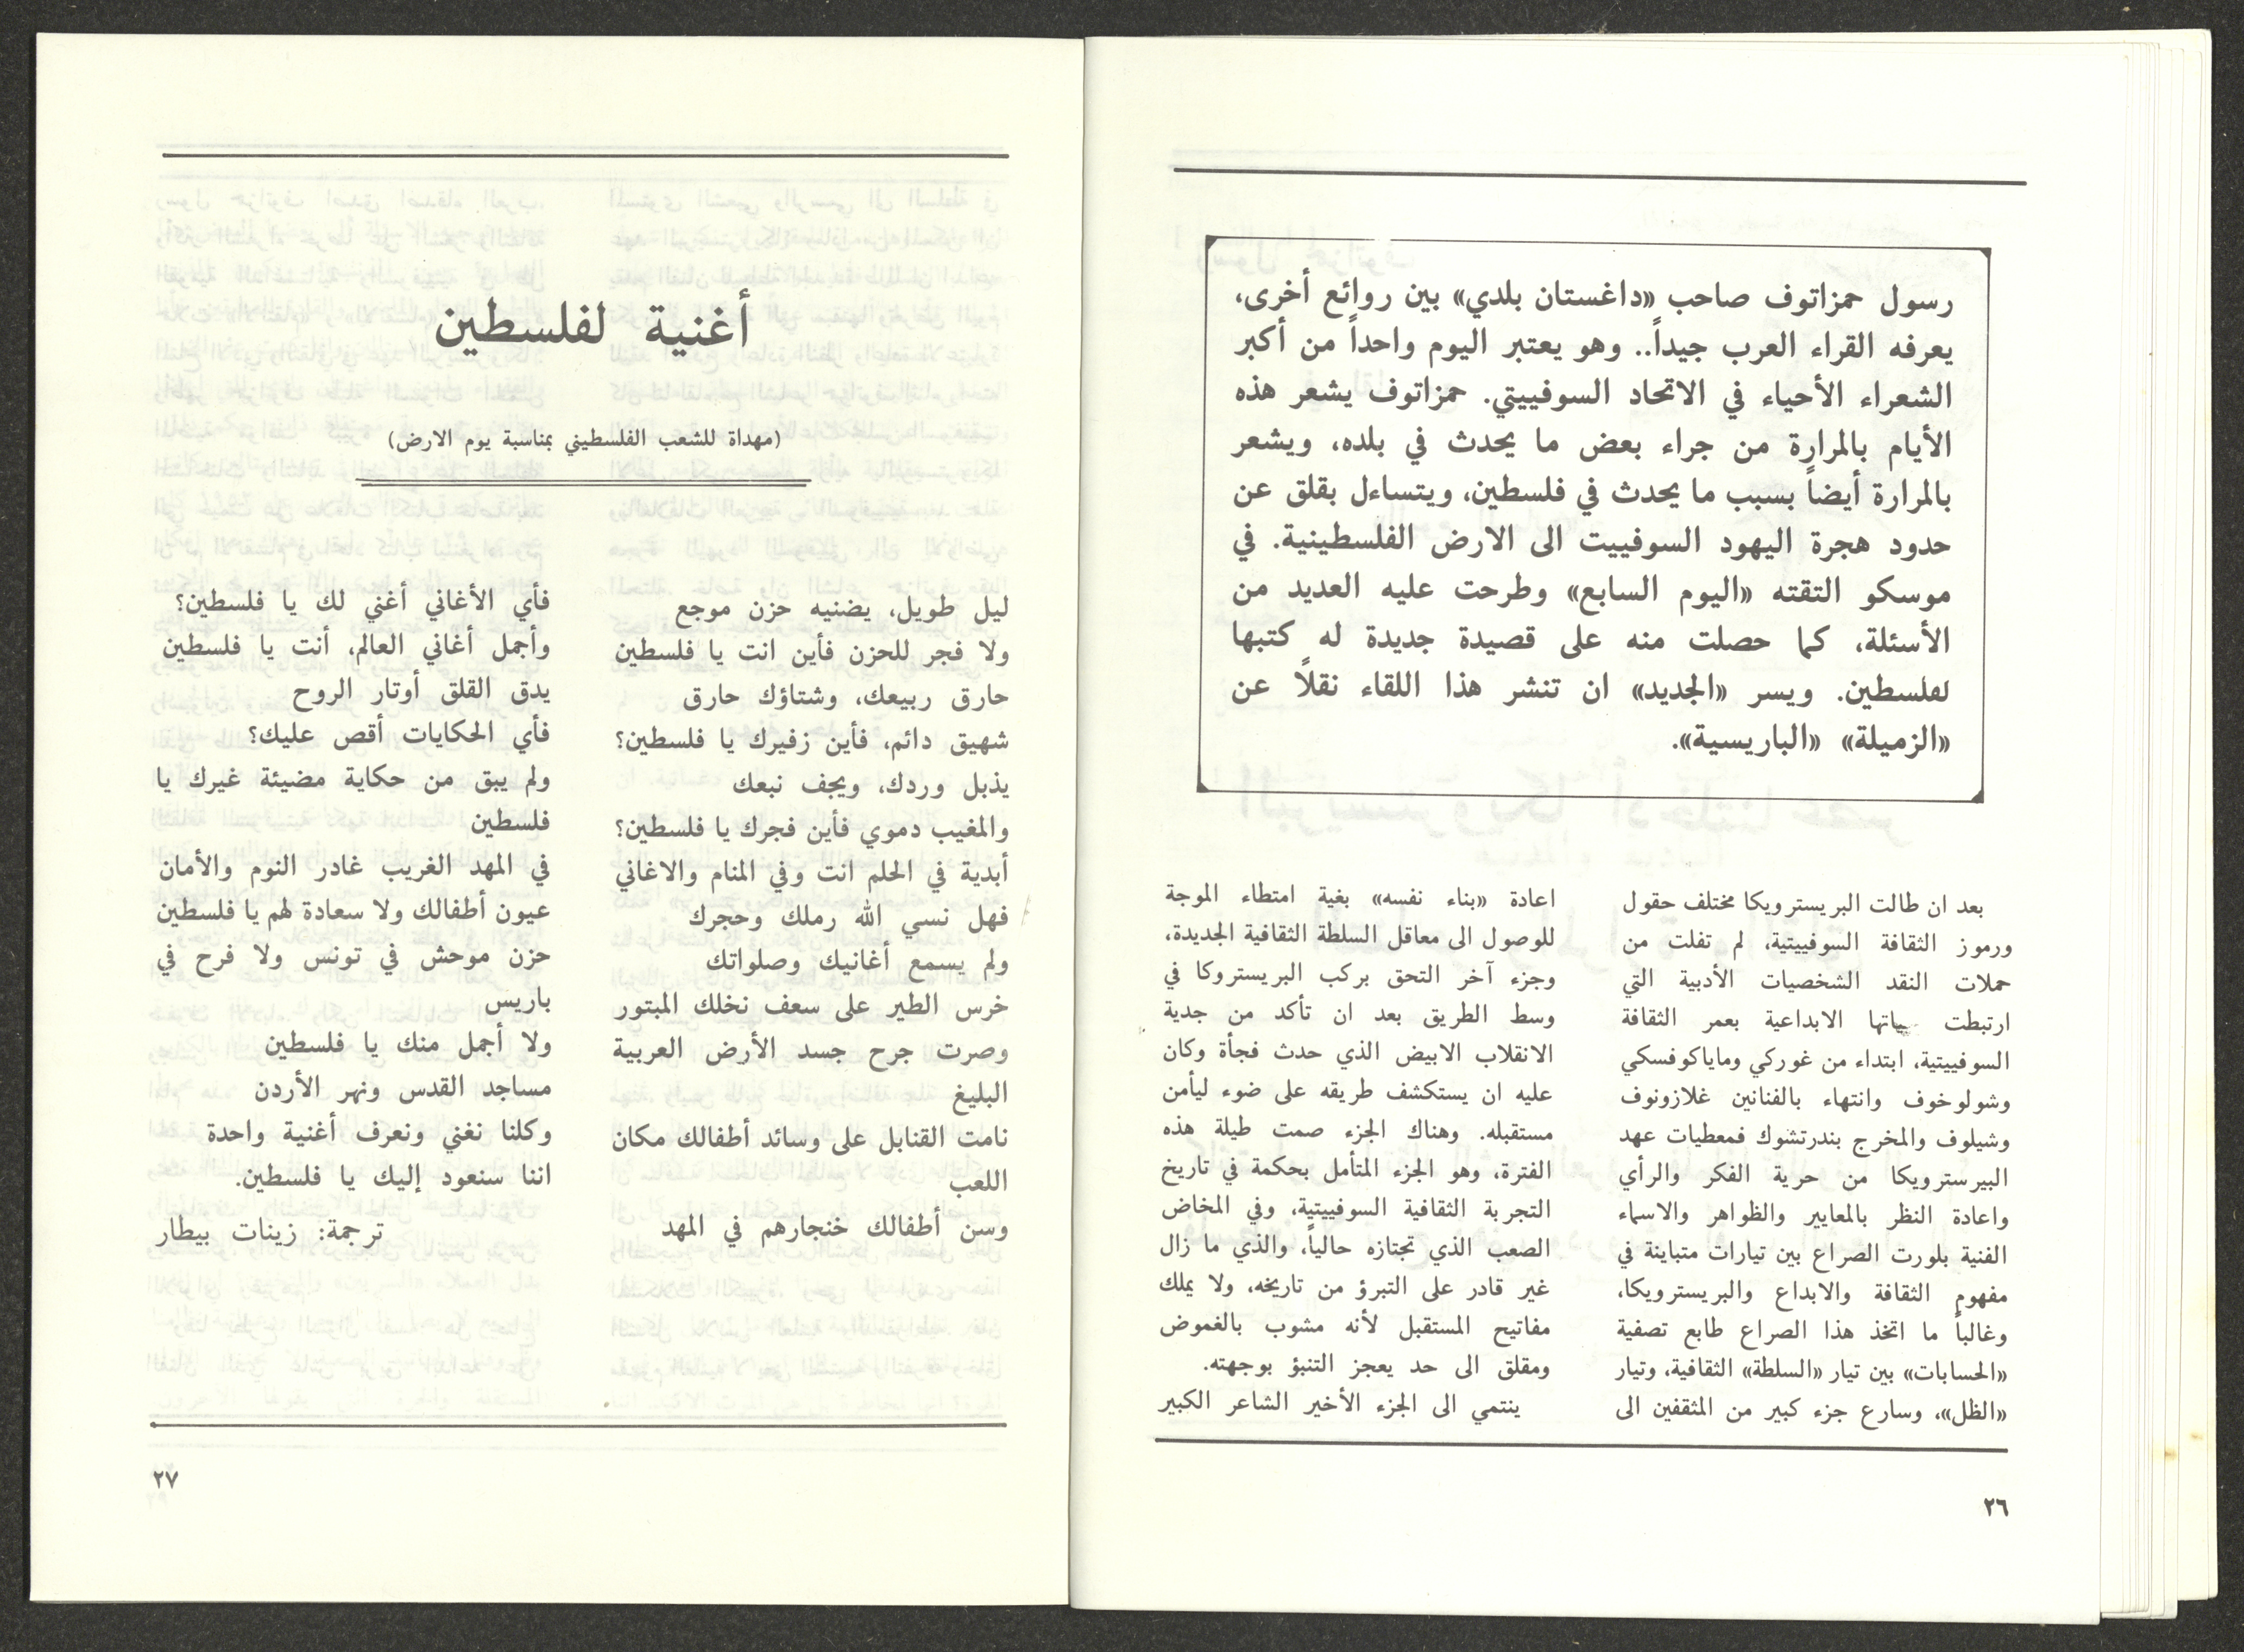 رسول حمزاتوف صاحب «داغستان بلدي» بين روائع أخرى،
يعرفه القراء العرب جيداً.. وهو يعتبر اليوم واحداً من أكبر
الشعراء الأحياء في الاتحاد السوفييتي. حمزاتوف يشعر هذه
الأيام بالمرارة من جراء بعض ما يحدث في بلده، ويشعر
بالمرارة أيضاً بسبب ما يحدث في فلسطين، ويتساءل بقلق عن
حدود هجرة اليهود السوفييت الى الارض الفلسطينية. في
موسكو التقته «اليوم السابع» وطرحت عليه العديد من
الأسئلة، كما حصلت منه على قصيدة جديدة له كتبها
لفلسطين. ويسر «الجديد» ان تنشر هذا اللقاء نقلاً عن
«الزميلة» «الباريسية».
بعد ان طالت البريسترويكا مختلف حقول
ورموز الثقافة السوفييتية، لم تفلت من
حملات النقد الشخصيات الأدبية التي
ارتبطت حياتها الابداعية بعمر الثقافة
السوفييتية، ابتداء من غوركي وماياكوفسكي
وشولوخوف وانتهاء بالفنانين غلازونوف
وشيلوف والمخرج بندرتشوك فمعطيات عهد
البيرسترويكا من حرية الفكر والرأي
واعادة النظر بالمعايير والظواهر والاسماء
الفنية بلورت الصراع بين تيارات متباينة في
مفهوم الثقافة والابداع والبريسترويكا،
وغالباً ما اتخذ هذا الصراع طابع تصفية
«الحسابات» بين تيار «السلطة» الثقافية، وتيار
«الظل»، وسارع جزء كبير من المثقفين الى
اعادة «بناء نفسه» بغية امتطاء الموجة
للوصول الى معاقل السلطة الثقافية الجديدة،
وجزء آخر التحق بركب البريستروكا في
وسط الطريق بعد ان تأكد من جدية
الانقلاب الابيض الذي حدث فجأة وكان
عليه ان يستكشف طريقه على ضوء ليأمن
مستقبله. وهناك الجزء صمت طيلة هذه
الفترة، وهو الجزء المتأمل بحكمة في تاريخ
التجربة الثقافية السوفييتية، وفي المخاض
الصعب الذي تجتازه حالياً، والذي ما زال
غير قادر على التبرؤ من تاريخه، ولا يملك
مفاتيح المستقبل لأنه مشوب بالغموض
ومقلق الى حد يعجز التنبؤ بوجهته.
ينتمي الى الجزء الأخير الشاعر الكبير
٢٦
أغنية لفلسطين
(مهداة للشعب الفلسطيني بمناسبة يوم الارض)
ليل طويل، يضنيه حزن موجع
ولا فجر للحزن فأين انت يا فلسطين
حارق ربيعك، وشتاؤك حارق
شهيق دائم، فأين زفيرك يا فلسطين؟
يذبل وردك، ويجف نبعك
والمغيب دموي فأين فجرك يا فلسطين؟
أبدية في الحلم انت وفي المنام والاغاني
فهل نسي الله رملك وحجرك
ولم يسمع أغانيك وصلواتك
خرس الطير على سعف نخلك المبتور
وصرت جرح جسد الأرض العربية
البليغ
نامت القنابل على وسائد أطفالك مكان
اللعب
وسن أطفالك خنجارهم في المهد
فأي الأغاني أغني لك يا فلسطين؟
وأجمل أغاني العالم، أنت يا فلسطين
يدق القلق أوتار الروح
فأي الحكايات أقص عليك؟
ولم يبق من حكاية مضيئة غيرك يا
فلسطين
في المهد الغريب غادر النوم والأمان
عيون أطفالك ولا سعادة لهم يا فلسطين
حزن موحش في تونس ولا فرح في
باريس
ولا أجمل منك يا فلسطين
مساجد القدس ونهر الأردن
وكلنا نغني ونعرف أغنية واحدة
اننا سنعود إليك يا فلسطين.
ترجمة: زينات بيطار
٢٧